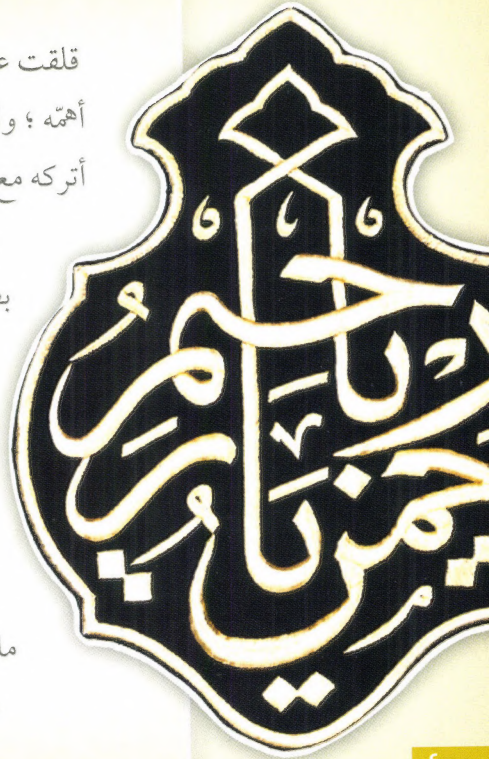 قلقت ع
أهمّه ؛ و
أتركه مع
ما
يا رحمن يا رحيم